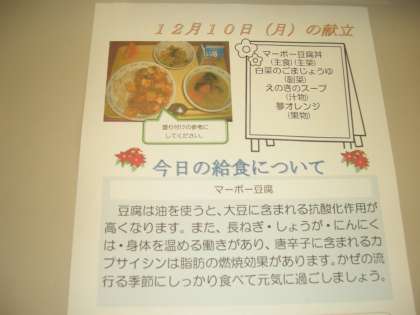 12月10日(月)の献立
マーボー豆腐丼
(主食)(主菜)
白菜のごまじょうゆ
(副菜)
えのきのスープ
(汁物)
夢オレンジ
(果物)
盛り付けの参考に
してください。
今日の給食について
マーボー豆腐
豆腐は油を使うと、大豆に含まれる抗酸化作用が
高くなります。また、長ねぎ・しょうが・にんにく
は・身体を温める働きがあり、唐辛子に含まれるカ
プサイシンは脂肪の燃焼効果があります。かぜの流
行る季節にしっかり食べて元気に過ごしましょう。